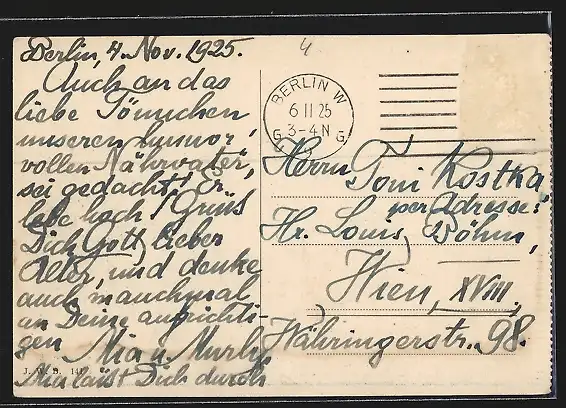 Berlin, 4. Nov. 1925.
Auch an das
liebe Tönnchen
unseren humor,
vollen Nährvater,
sei gedacht! Er
lebe hoch! Grüss
Dich Gott, lieber
Alter, und denke
auch manchmal
an Deine aufrichti-
gen
Mia u. Murly
Mia lässt Dich durch
J. W. B. 141
4
BERLIN W
6 11 25
3-4 N
G G
Herrn Toni Kostka,
per Adresse:
Hr. Louis Böhm,
Wien, XVIII.
Währingerstr. 98.